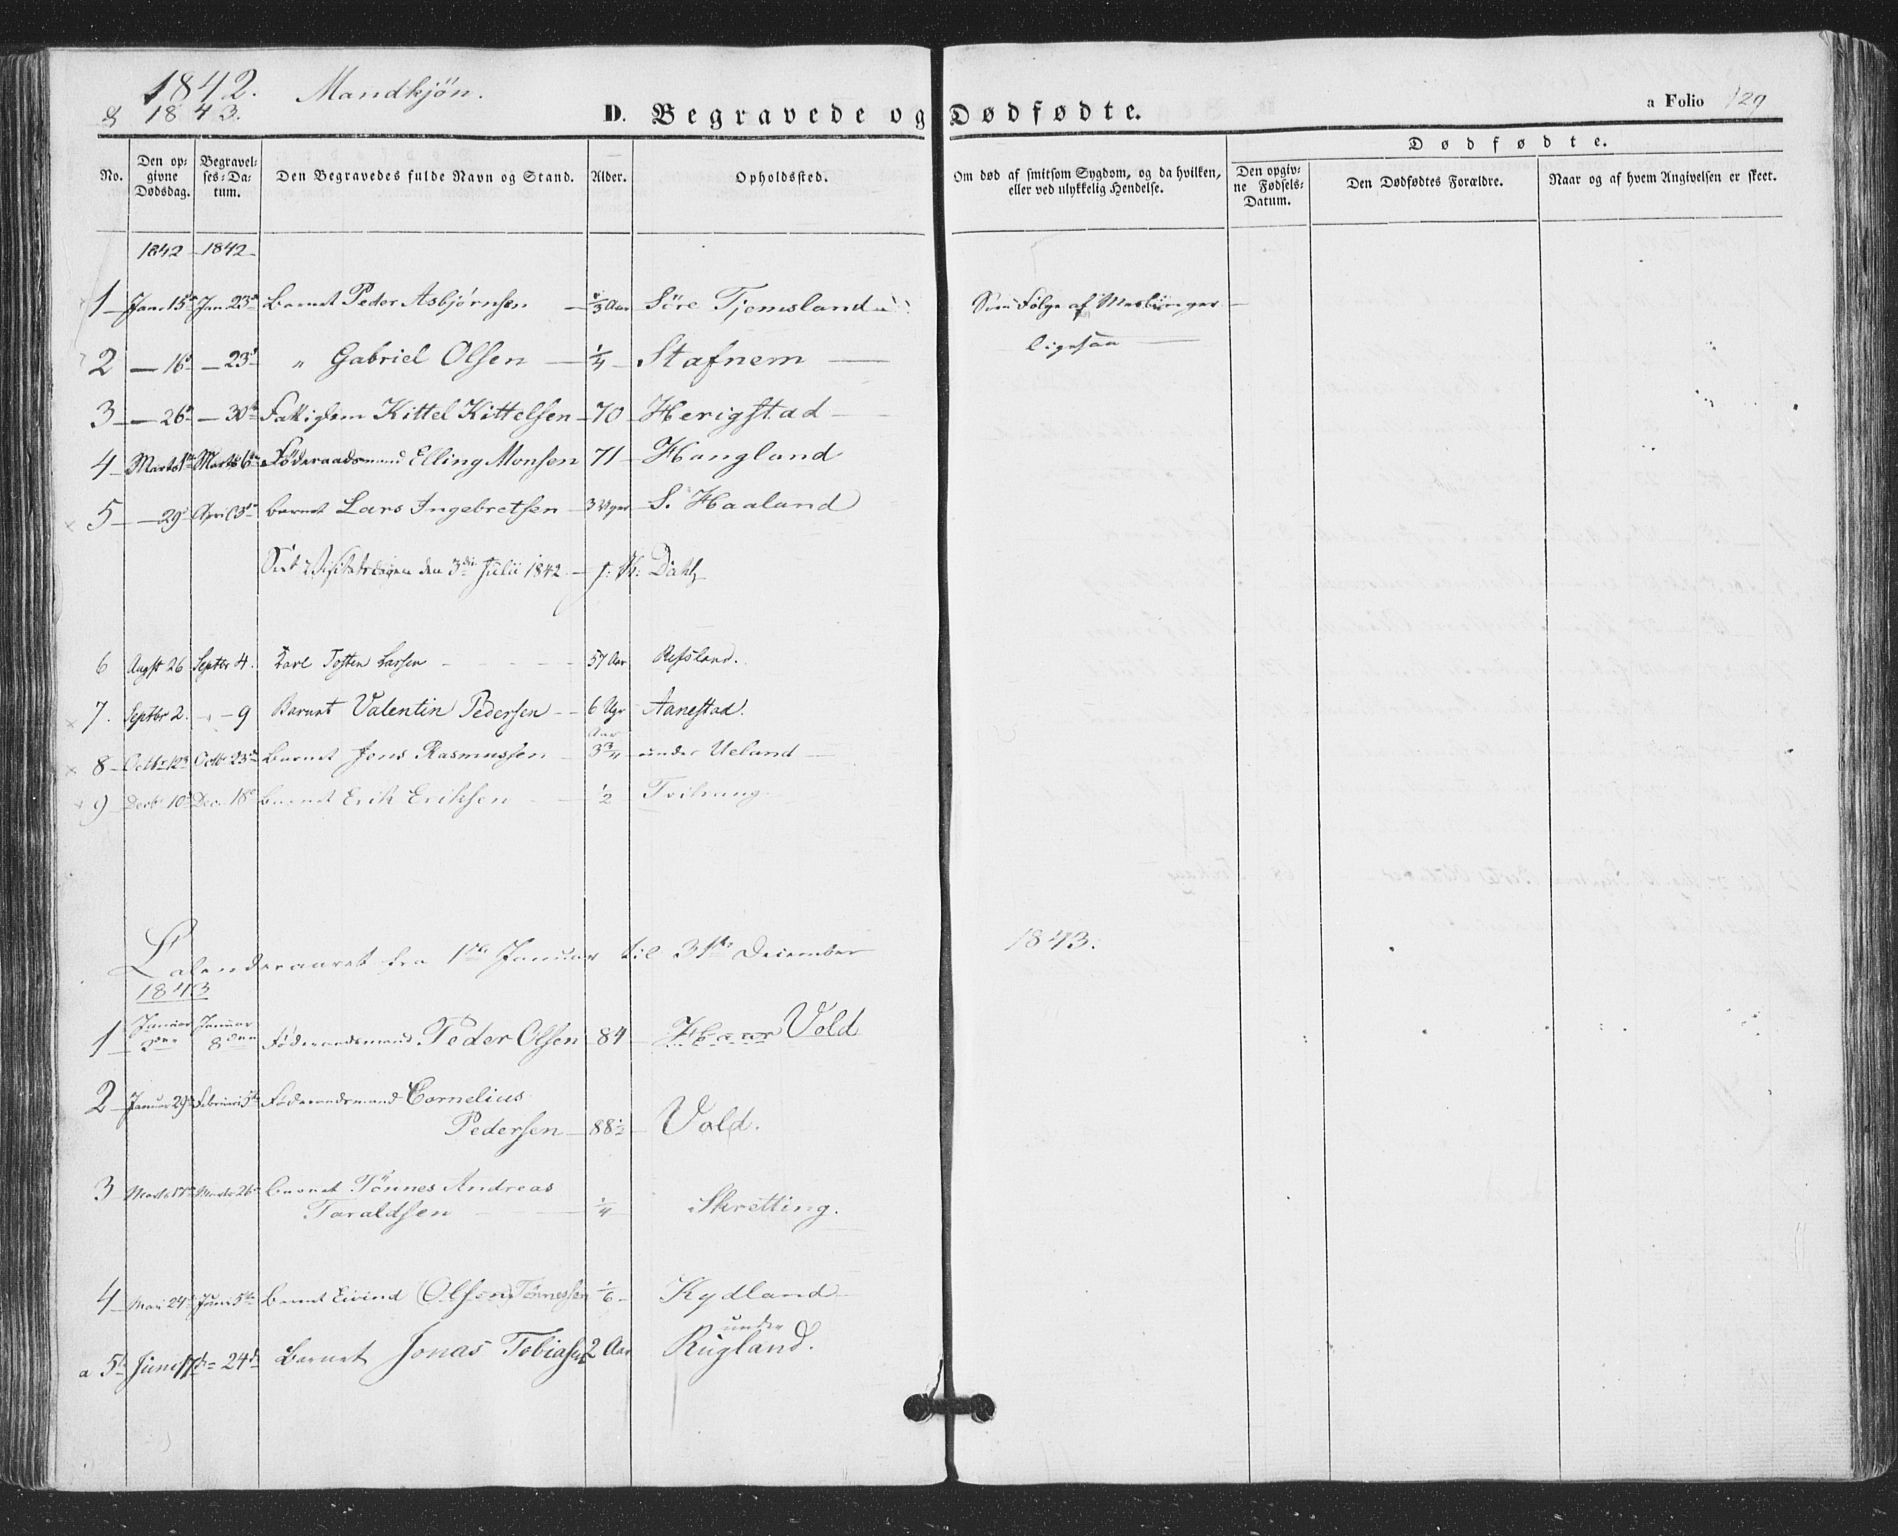 1842. Mandkjön.
& 1843.
D. Begravede og Dødfødte.
a Folio 129
No.
Den op-
givne
Dødsdag.
Begravel-
ses-Da-
tum.
Den Begravedes fulde Navn og Stand.
Alder.
Opholdssted.
Om død af smitsom Sygdom, og da hvilken,
eller ved ulykkelig Hendelse.
Dødfødte.
Den opgiv-
ne Fødsels-
Datum.
Den Dødfødtes Forældre.
Naar og af hvem Angivelsen er skeet.
1842 1842
1 Jan. 15de Jan 23de Barnet Peder Asbjørnsen Aar Söre Tjemsland Som Følge af Meslinger
2 — 16de — 23de " Gabriel Olsen 1/4 Stafnem ligesaa
3 — 26de — 30te Fattiglem Kittel Kittelsen 70 Herigstad
4 Marts 1ste Marts 6te Föderaadsmand Elling Monsen 71 Haugland
5 — 29de April 3die barnet Lars Ingebretsen 3 Uger S. Haaland
den 3die Julii 1842 Dahl
6 Augst 26 Septbr 4. Karl Tosten Larsen 57 Aar Refsland.
7. Septbr 2. — 9 Barnet Valentin Pedersen 6 Ugr Aanestad.
8 Octbr 12te Octb 23de barnet Jens Rasmussen 3 3/4 Aar under Ueland
9 Decb 10de Dec. 18de barnet Erik Eriksen 1/2 Tvihaug
Calenderaaret fra 1ste Januar til 31te December 1843.
1843
1 Januar 2den Januar 8den Föderaadsmand Peder Olsen 84 Haar Vold
2 Januar 29de Februari 5te Föderaadsmand Cornelius
Pedersen 88 1/2 Vold.
3 Marts 17de Marts 26de barnet Tönnes Andreas
Taraldsen 1/4 Skretting.
4 Mai 24de Juni 5te barnet Eivind (Olsen) Tønnessen 1/6 Kydland
a 5te Juni 17de — 24de Barnet Jonas Tobiasen 2 Aar under
Rugland.